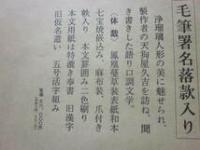 毛筆署名落款入り
浄瑠璃人形の美に魅せられ、
製作者の天狗屋久吉を訪ね、聞
き書きした語り口調文学。
〈体裁〉鳳凰蔓草装表紙和本
七宝紋嵌込み、麻布装、爪付き
帙入り 本文罫囲み二色刷り
本文用紙は特漉き奉書 旧漢字
旧仮名遣い 五号活字組み